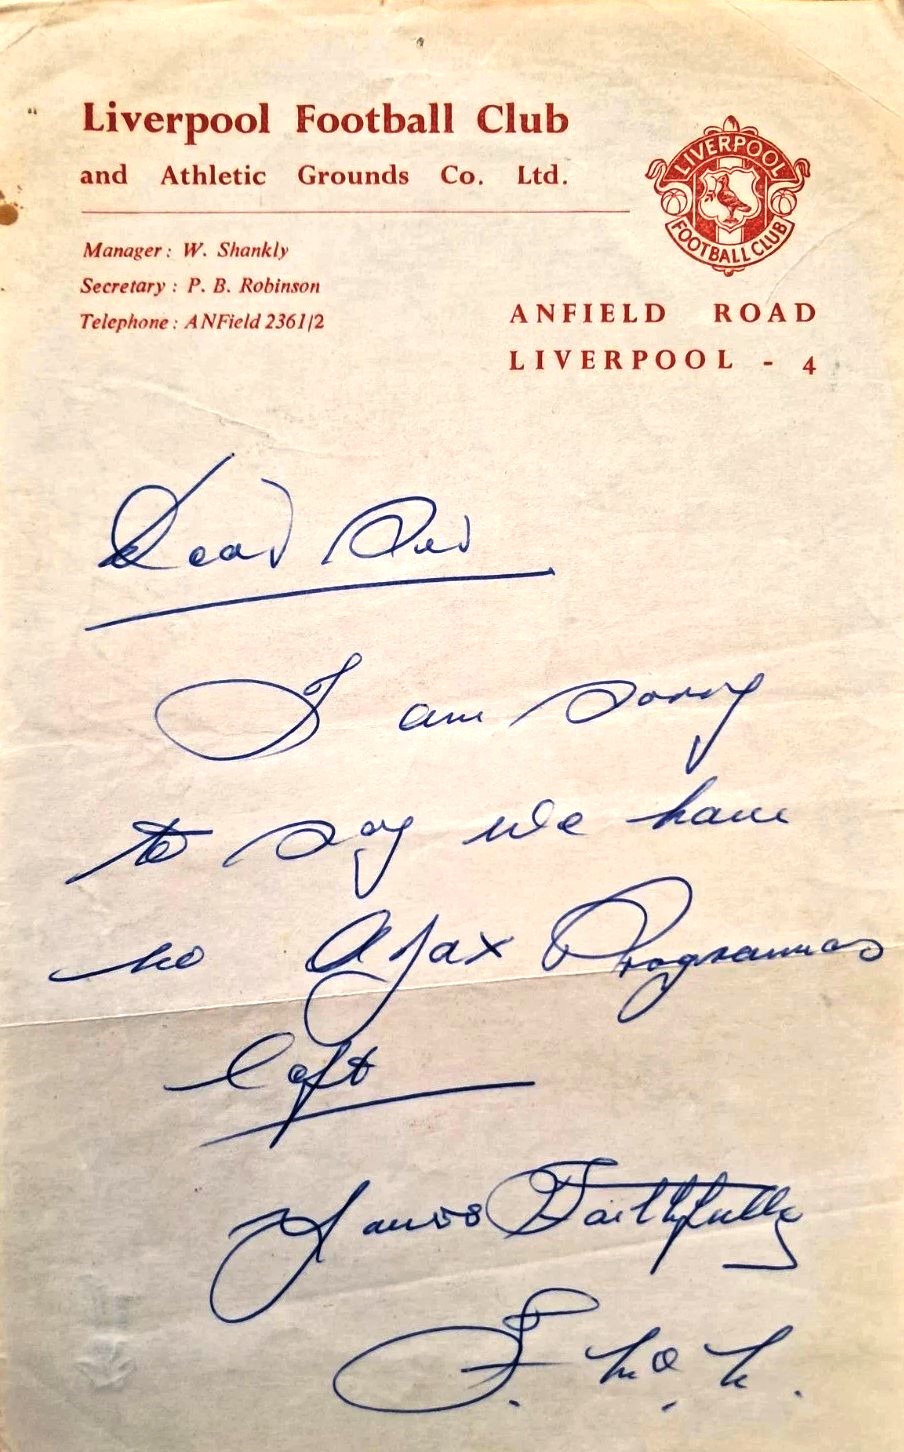 Liverpool Football Club
and Athletic Grounds Co. Ltd.
LIVERPOOL
FOOTBALL CLUB
Manager: W. Shankly
Secretary: P. B. Robinson
Telephone: ANField 2361/2
ANFIELD ROAD
LIVERPOOL - 4
Dear Sir
I am sorry
to say we have
no Ajax Programmes
left
Yours Faithfully